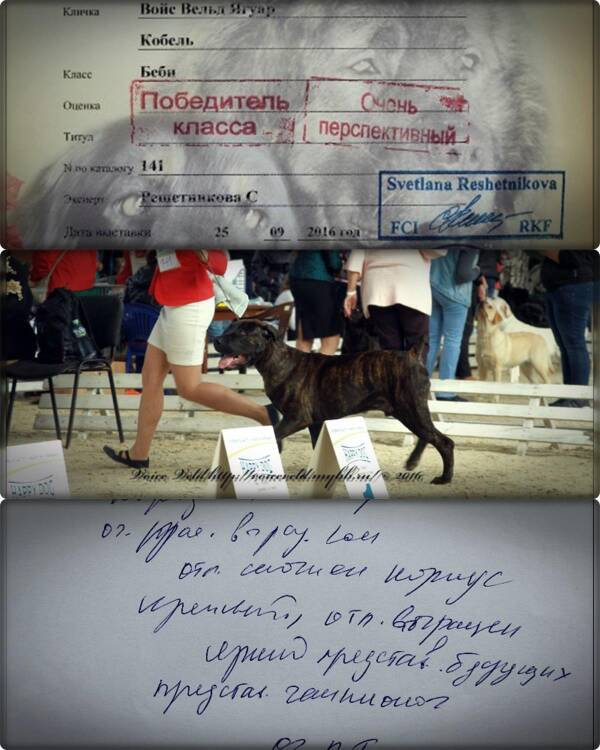 Кличка Войс Вельд Ягуар
Кобель
Класс Беби
Оценка
Победитель класса
Очень перспективный
Титул
N по каталогу 141
Эксперт Решетникова С
Svetlana Reshetnikova
FCI RKF
Дата выставки 25 09 2016 год
HAPPY DOG
HAPPY DOG
Voice Veld http://voiceveld.mybb.ru/ © 2016
отл. сложен корпус
крепкий, отл. выращен
яркий представ. будущих
представ. чемпионов